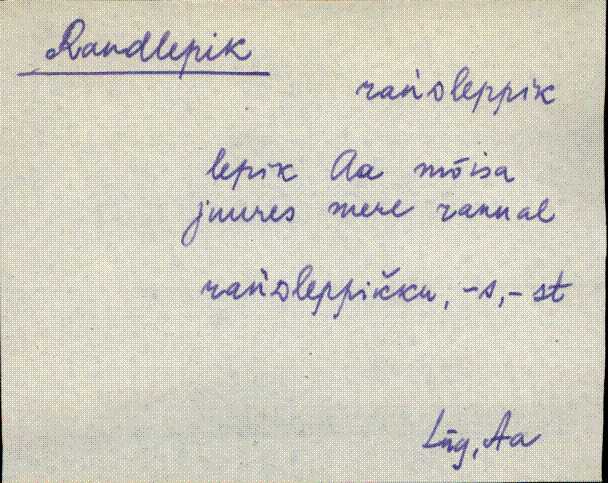 Randlepik
rańᴅleppik
lepik Aa mõisa
juures mere rannal
rańᴅleppikku, -s, -st
Lüg, Aa